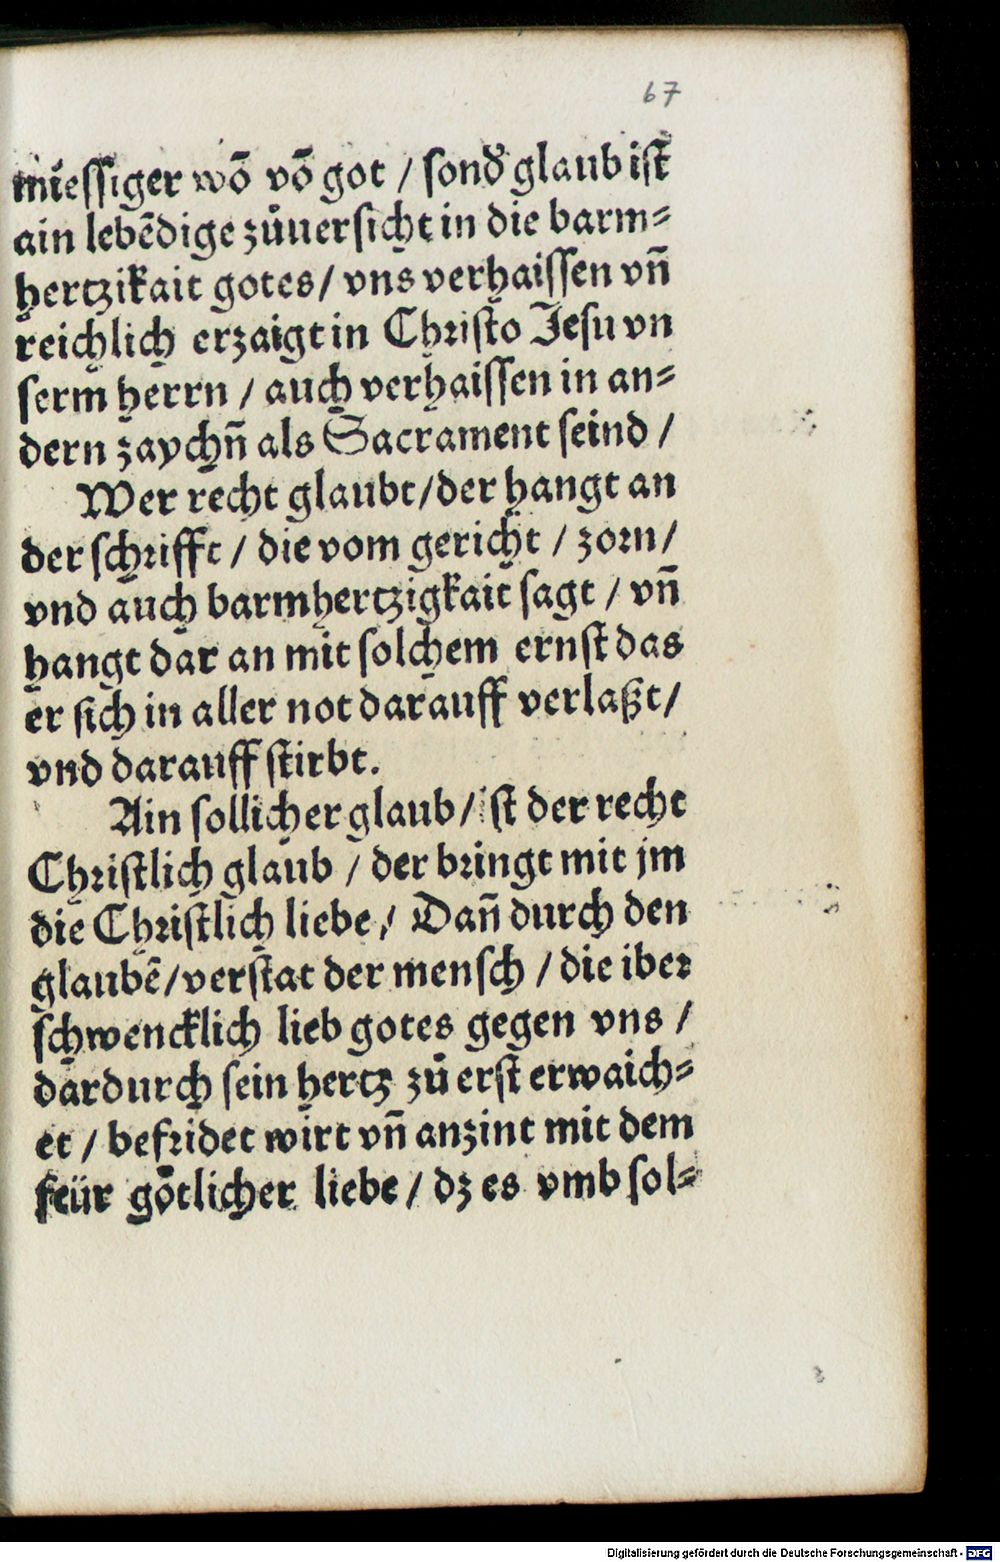 67
miessiger wō vō got / sond̕ glaub ist
ain lebēdige zůuersicht in die barm⸗
hertzikait gotes / vns verhaissen vñ
reichlich erzaigt in Christo Jesu vn
serm herrn / auch verhaissen in an⸗
dern zaychñ als Sacrament seind /
Wer recht glaubt / der hangt an
der schrifft / die vom gericht / zorn /
vnd auch barmhertzigkait sagt / vñ
hangt dar an mit solchem ernst das
er sich in aller not darauff verlaßt /
vnd darauff stirbt.
Ain sollicher glaub / ist der recht
Christlich glaub / der bringt mit jm
die Christlich liebe / Dañ durch den
glaubē / verstat der mensch / die iber
schwencklich lieb gotes gegen vns /
dardurch sein hertz zů erst erwaich⸗
et / befridet wirt vñ anzint mit dem
feür götlicher liebe / dz es vmb sol⸗
Digitalisierung gefördert durch die Deutsche Forschungsgemeinschaft - DFG